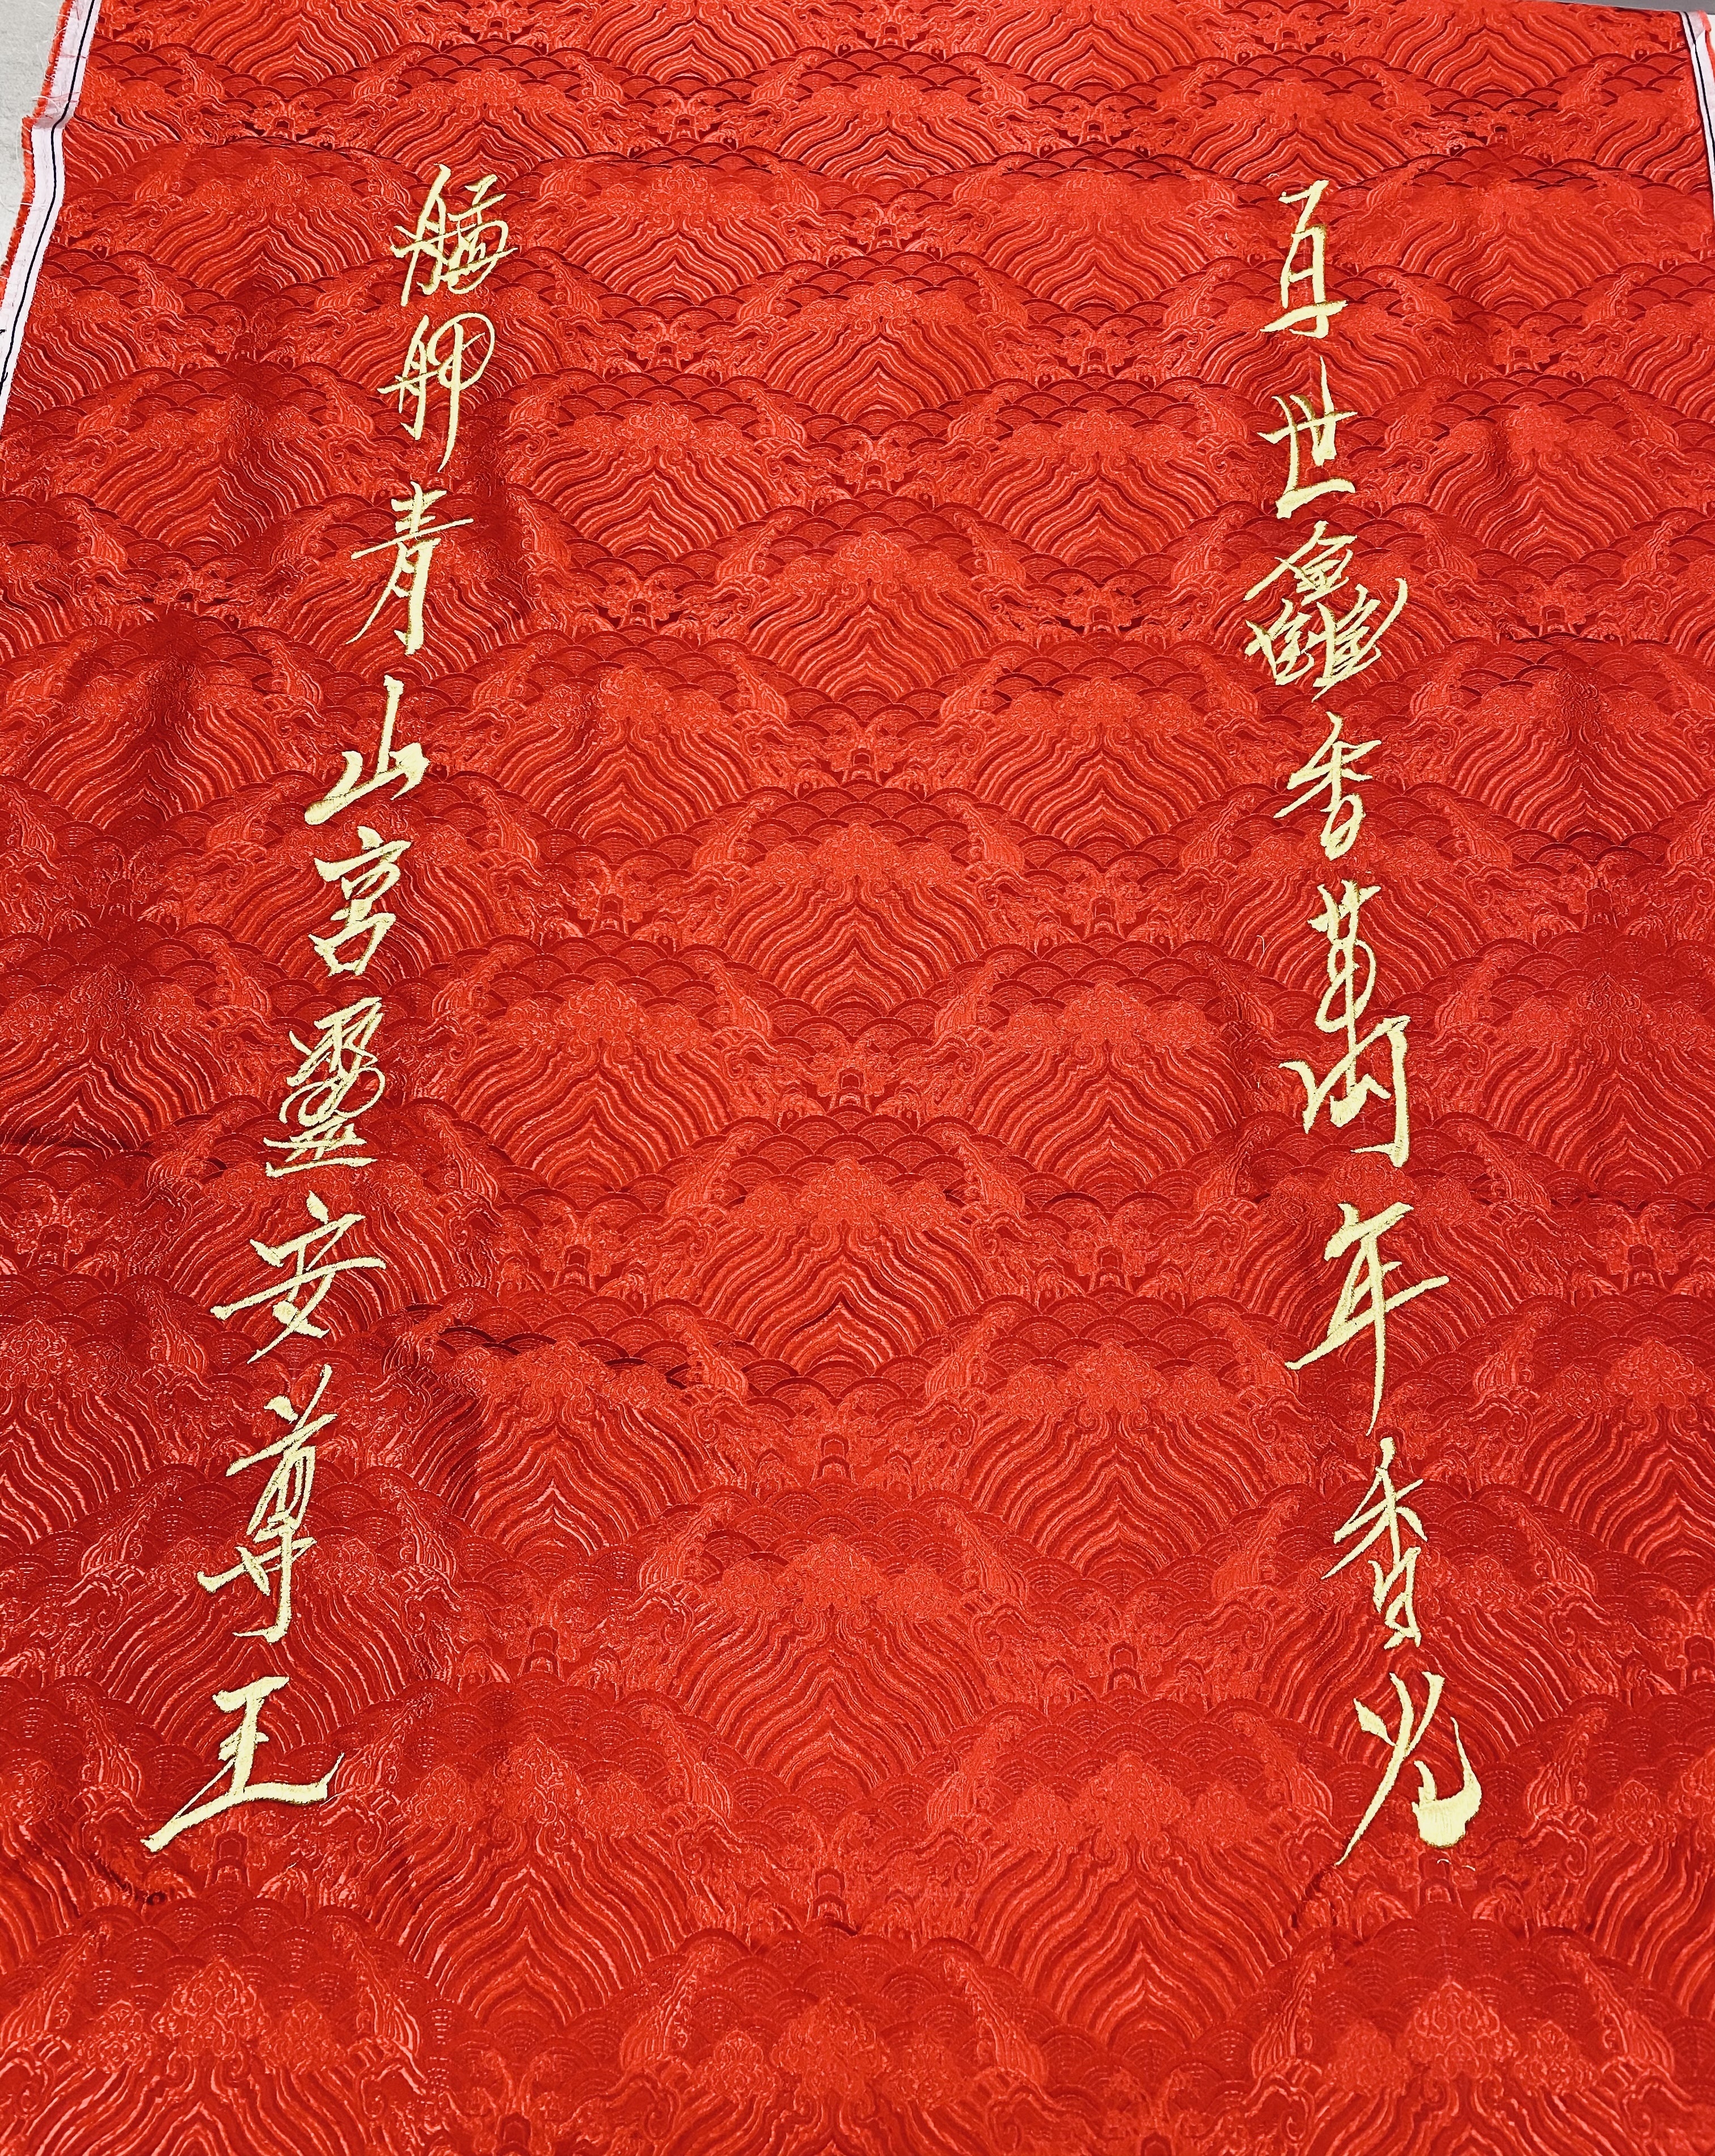 百世龕香萬年香火
艋舺青山宮靈安尊王